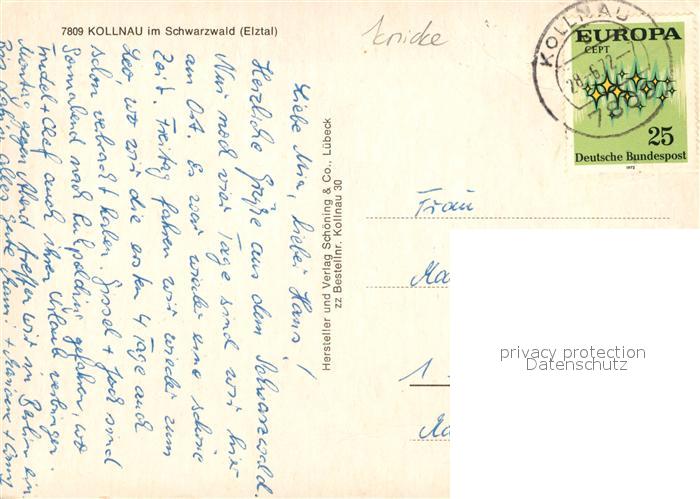 7809 KOLLNAU im Schwarzwald (Elztal)
Knicke
KOLLNAU
28.-6.72
7809
EUROPA
CEPT
25
Deutsche Bundespost
1972
Liebe Mia, lieber Hans!
Herzliche Grüße aus dem Schwarzwald.
Nur noch vier Tage sind wir hier
am Ort. Es war wieder eine schöne
Zeit. Freitag fahren wir wieder zum
Leo, wo wir die ersten 4 Tage auch
schon verbracht haben. Gissel + sind
Sonnabend nach Ruhpolding gefahren, wo
+ Olaf auch ihren Urlaub verbringen.
Montag gegen Abend treffen wir in Berlin ein
Bis dahin alles Gute +
Hersteller und Verlag Schöning & Co., Lübeck
zz Bestellnr. Kollnau 30
Frau
1
privacy protection
Datenschutz